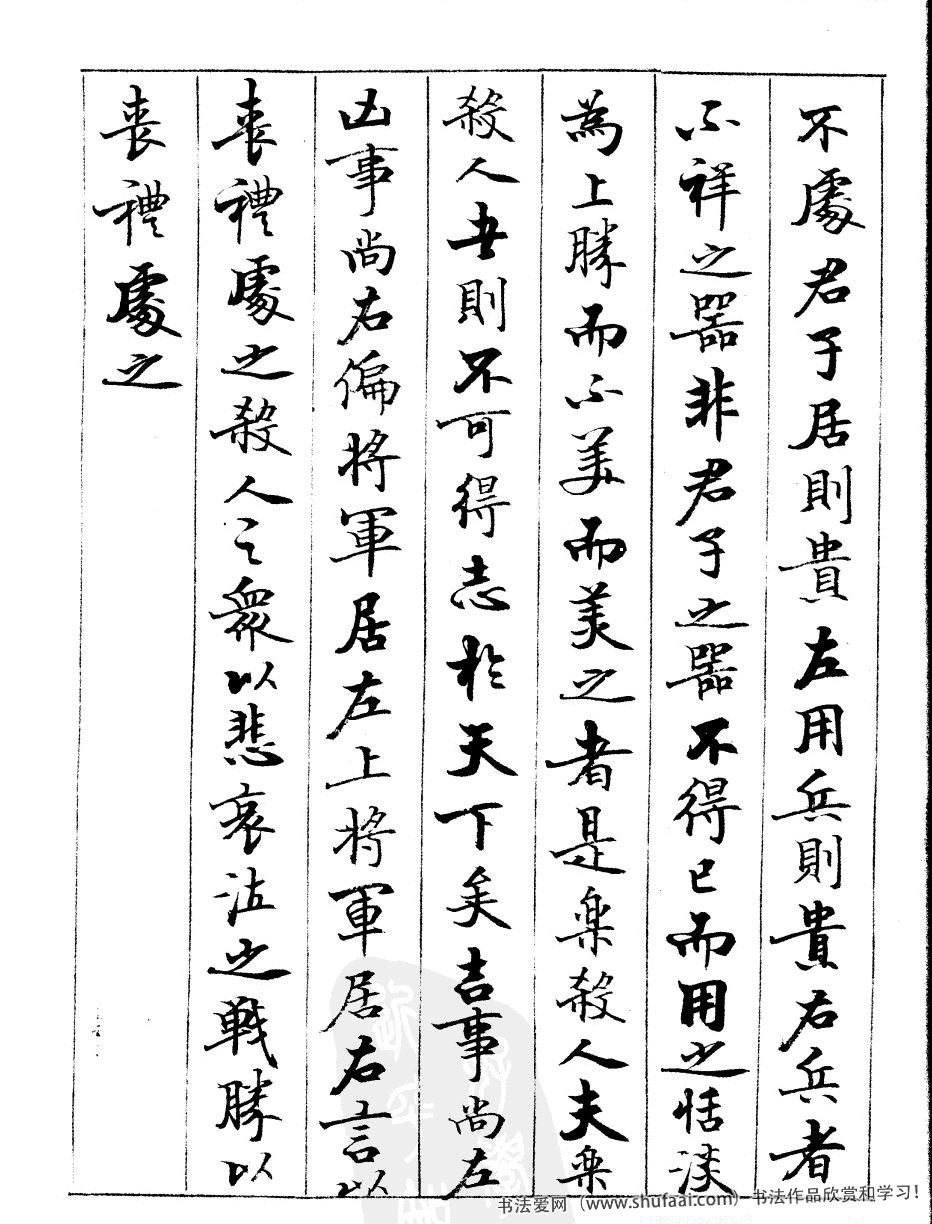 不處君子居則貴左用兵則貴右兵者
不祥之器非君子之器不得已而用之恬淡
為上勝而不美而美之者是樂殺人夫樂
殺人者則不可得志於天下矣吉事尚左
凶事尚右偏將軍居左上將軍居右言以
喪禮處之殺人之衆以悲哀泣之戰勝以
喪禮處之
书法爱网（www.shufaai.com）-书法作品欣赏和学习！